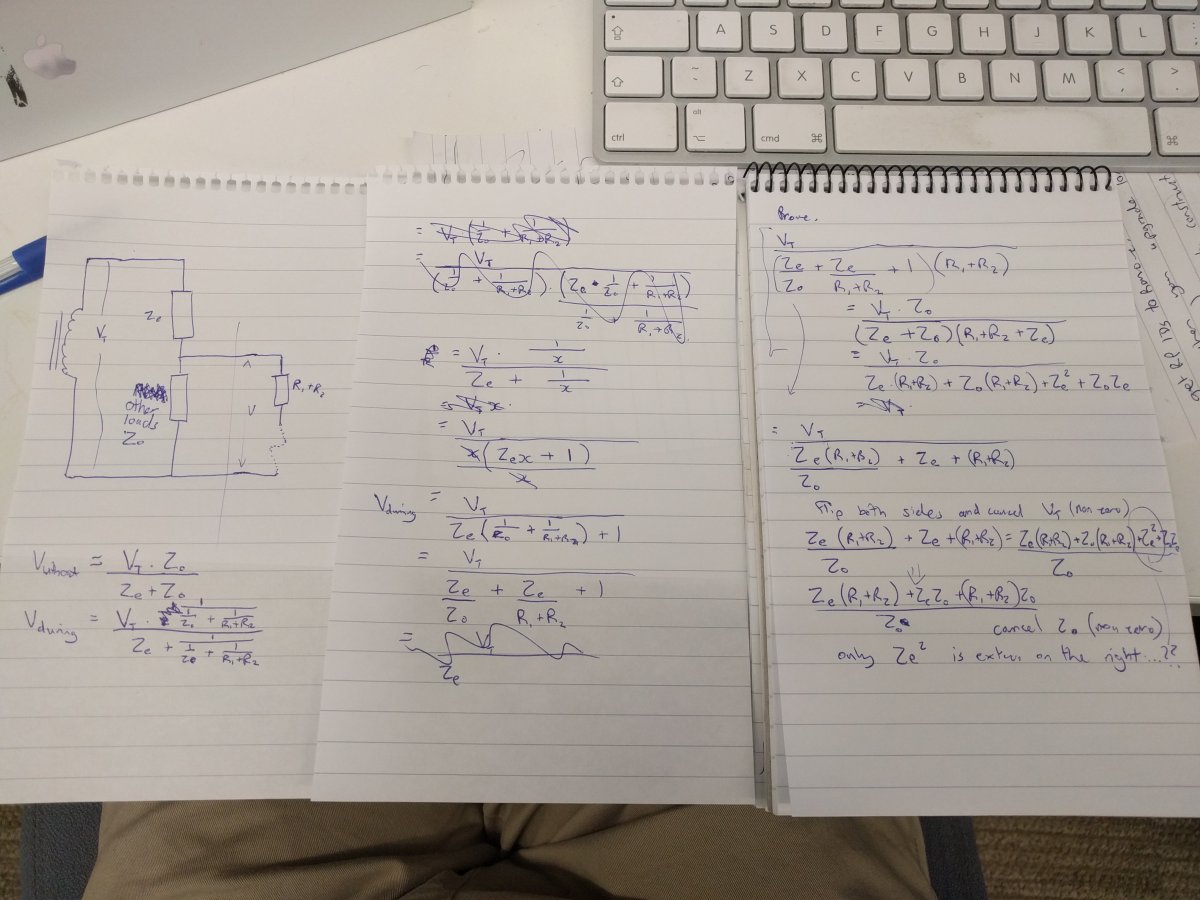 A S D F G H J K L
Z X C V B N M < ,
> .
~ `
ctrl alt ⌥ cmd ⌘ ⌘
V_T
Z_e
R_1+R_2
V
other
loads
Z_o
V_without = V_T . Z_o / (Z_e + Z_o)
V_during = V_T . 1/(1/Z_o + 1/(R_1+R_2)) / (Z_e + 1/(1/Z_o + 1/(R_1+R_2)))
= V_T . 1/x / (Z_e + 1/x)
= V_T / (x(Z_e x + 1) / x)
V_during = V_T / (Z_e (1/Z_o + 1/(R_1+R_2)) + 1)
= V_T / (Z_e/Z_o + Z_e/(R_1+R_2) + 1)
Prove.
V_T / ((Z_e/Z_o + Z_e/(R_1+R_2) + 1) (R_1+R_2))
= V_T . Z_o / ((Z_e + Z_o)(R_1+R_2 + Z_e))
= V_T . Z_o / (Z_e.(R_1+R_2) + Z_o(R_1+R_2) + Z_e^2 + Z_o Z_e)
= V_T / (Z_e(R_1+R_2)/Z_o + Z_e + (R_1+R_2))
Flip both sides and cancel V_T (non zero)
Z_e (R_1+R_2)/Z_o + Z_e + (R_1+R_2) = (Z_e(R_1+R_2) + Z_o(R_1+R_2) + Z_e^2 + Z_e Z_o)/Z_o
⇓
(Z_e(R_1+R_2) + Z_e Z_o + (R_1+R_2)Z_o)/Z_o
cancel Z_o (non zero)
only Z_e^2 is extra on the right...??
construct
upgrade